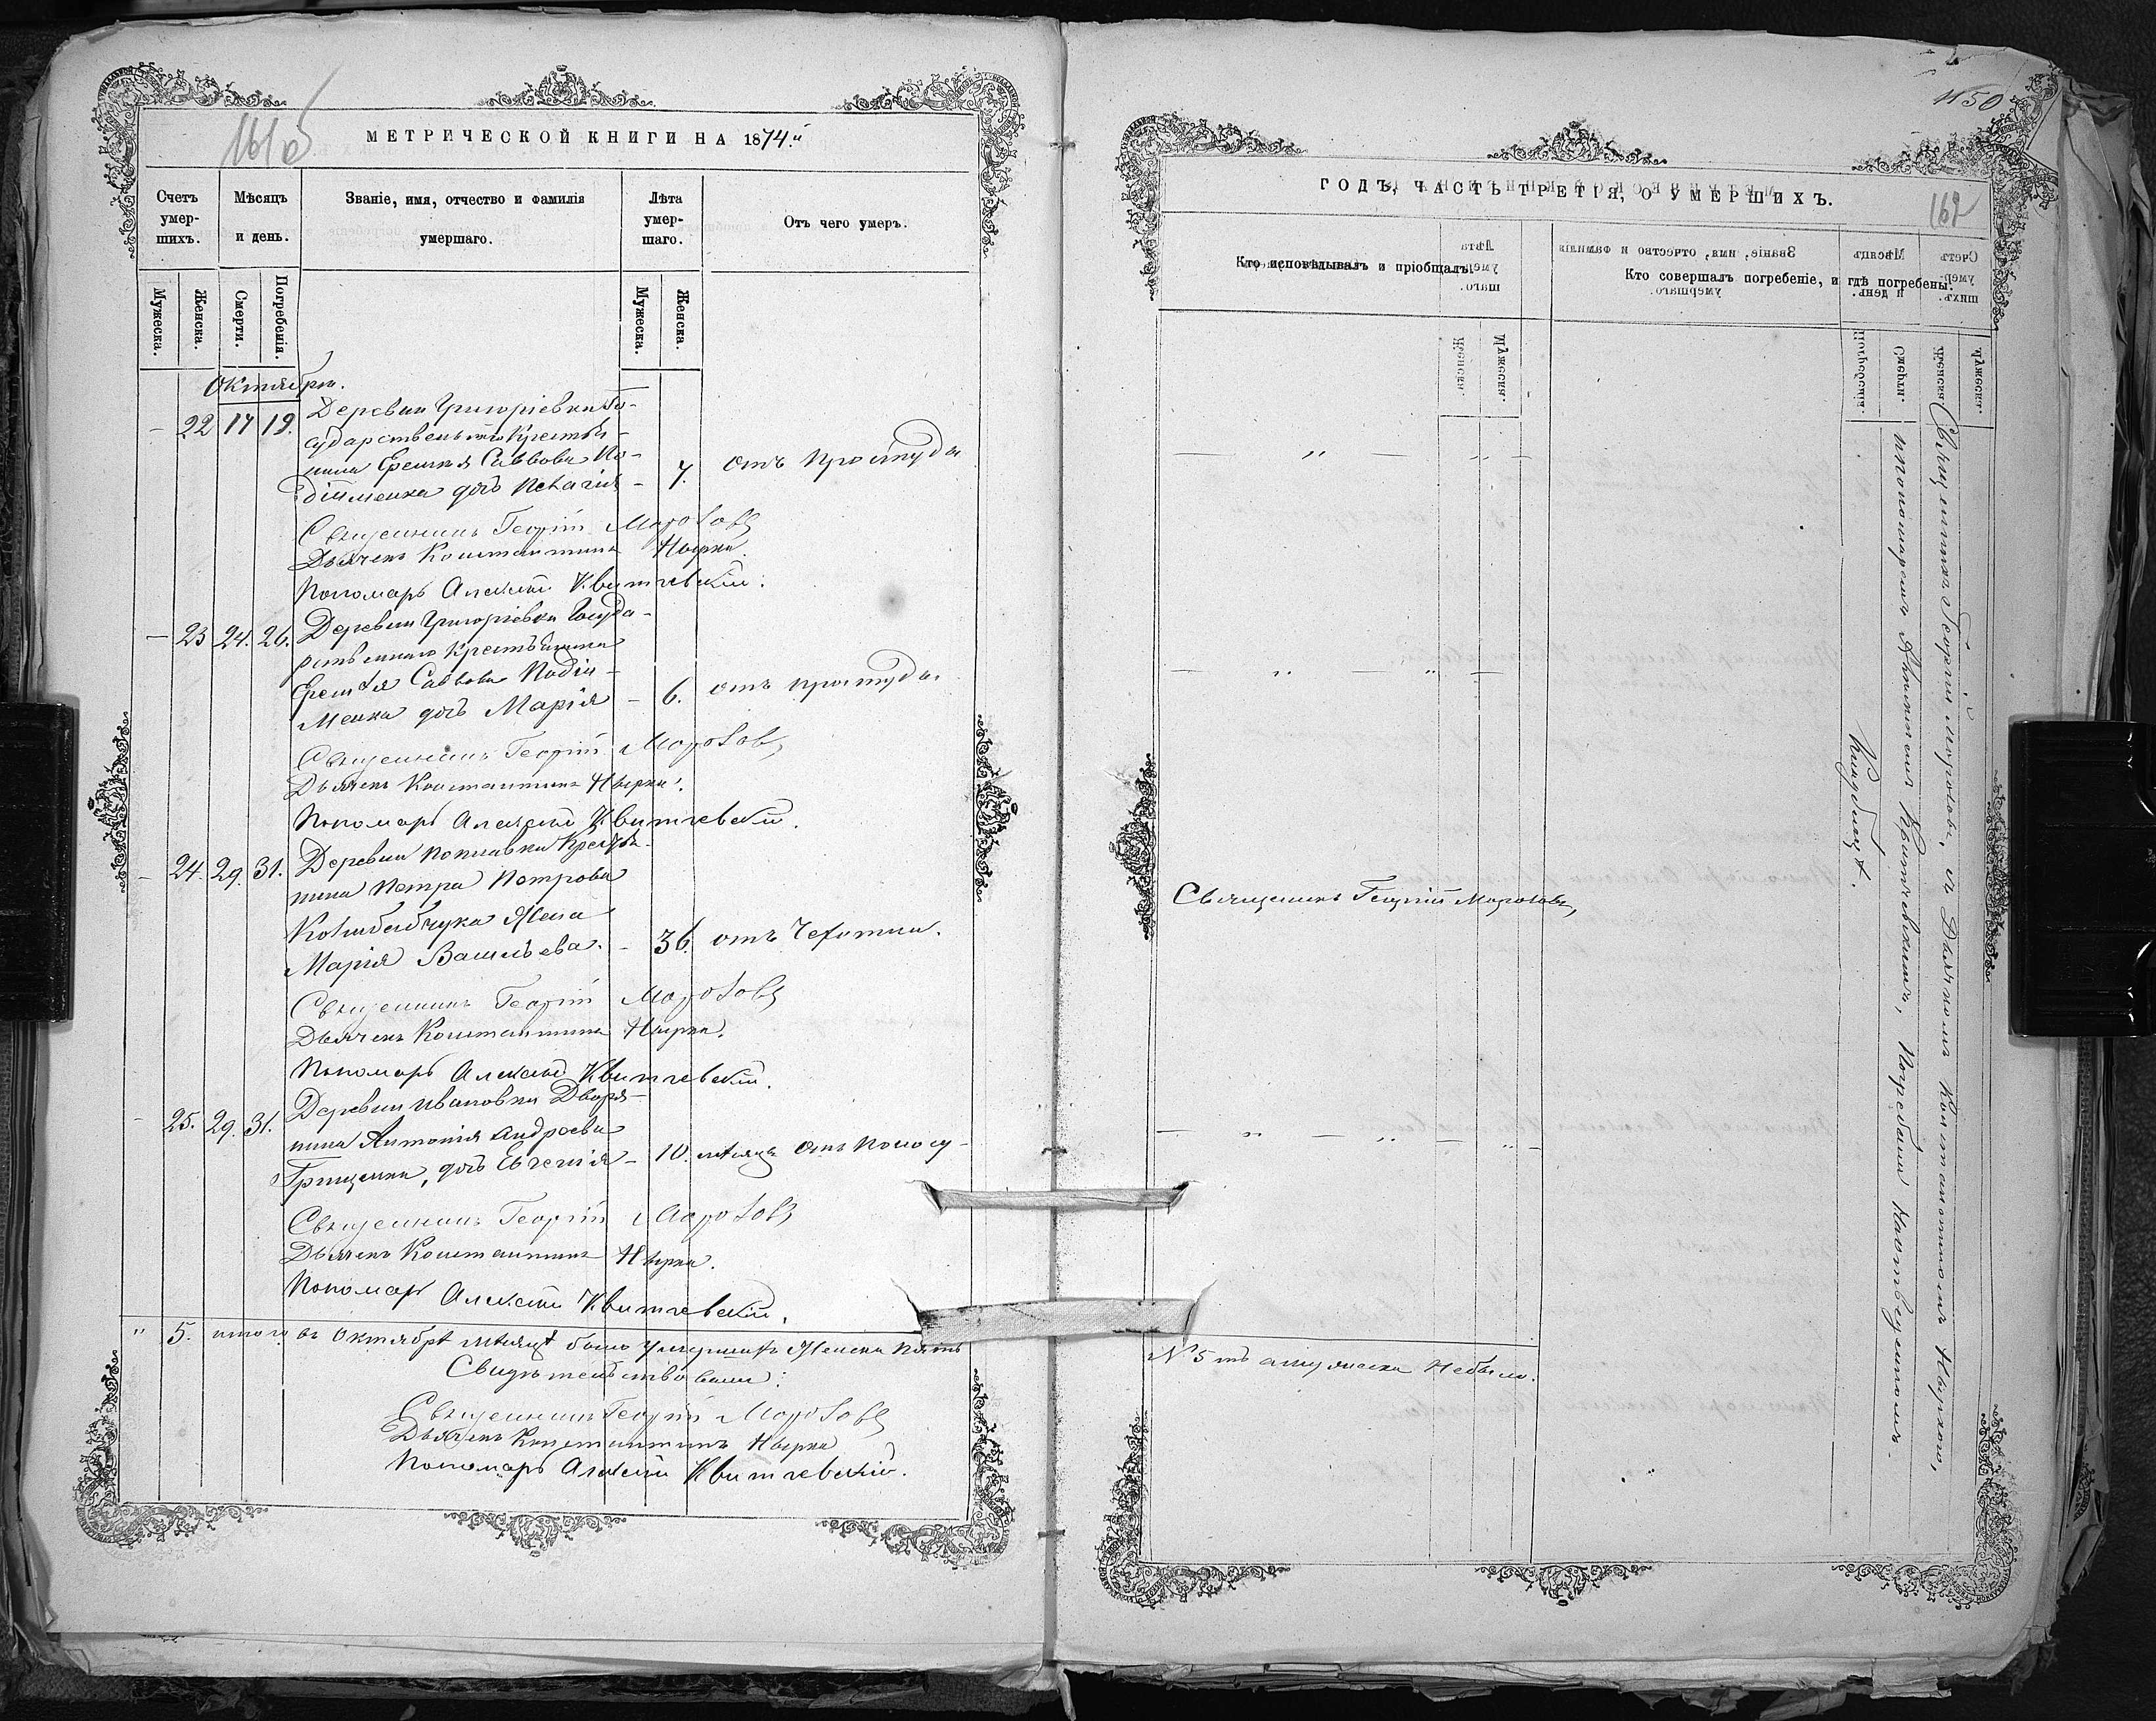 161 об
МЕТРИЧЕСКОЙ КНИГИ НА 1874й
Счетъ умер- шихъ.
Мѣсяцъ и день.
Званіе, имя, отчество и фамилія умершаго.
Лѣта умер- шаго.
Отъ чего умеръ.
Мужеска.
Женска.
Смерти.
Погребенія.
Мужеска.
Женска.
Октября.
— 22 17 19. Деревни Григоріевки Го-
сударственнаго Крестья-
нина Саввова По-
дійменка дочь Пелагія — 7. отъ простуды
Священникъ Георгій Морозовъ
Дьячекъ Константинъ Нырко.
Пономарь Алексѣй Квитчевскій.
— 23 24. 26. Деревни Григоріевки Госуда-
рственнаго Крестьянина
Саввова Подій-
менка дочь Марія — 6. отъ простуды
Священникъ Георгій Морозовъ
Дьячекъ Константинъ Нырко.
Пономарь Алексѣй Квитчевскій.
— 24. 29. 31. Деревни Крестья-
нина Петра Петрова
жена
Марія Васильева. — 36. отъ Чахотки.
Священникъ Георгій Морозовъ
Дьячекъ Константинъ Нырко.
Пономарь Алексѣй Квитчевскій.
— 25. 29. 31. Деревни Ивановки Дворя-
нина Антонія Андреева
Грищенка, дочь Евгенія — 10. мѣсяц. отъ поносу
Священникъ Георгій Морозовъ
Дьячекъ Константинъ Нырко.
Пономарь Алексѣй Квитчевскій.
" 5. итого въ Октябрѣ мѣсяцѣ было умершихъ Женска пять
Свидѣтельствовали:
Священникъ Георгій Морозовъ
Дьячекъ Константинъ Нырко
Пономарь Алексѣй Квитчевскій.
50
162
ГОДЪ, ЧАСТЬ ТРЕТІЯ, О УМЕРШИХЪ.
Кто исповѣдывалъ и пріобщалъ.
Кто совершалъ погребеніе, и гдѣ погребены.
— " — " —
— " — " —
Священникъ Георгій Морозовъ,
— " — " — " —
Священникъ Георгій Морозовъ, съ Дьячкомъ Константиномъ Ныркою,
и пономаремъ Алексѣемъ Квитчевскимъ, Погребены на общемъ
Кладбищѣ.
№ 5 мъ Небыло.